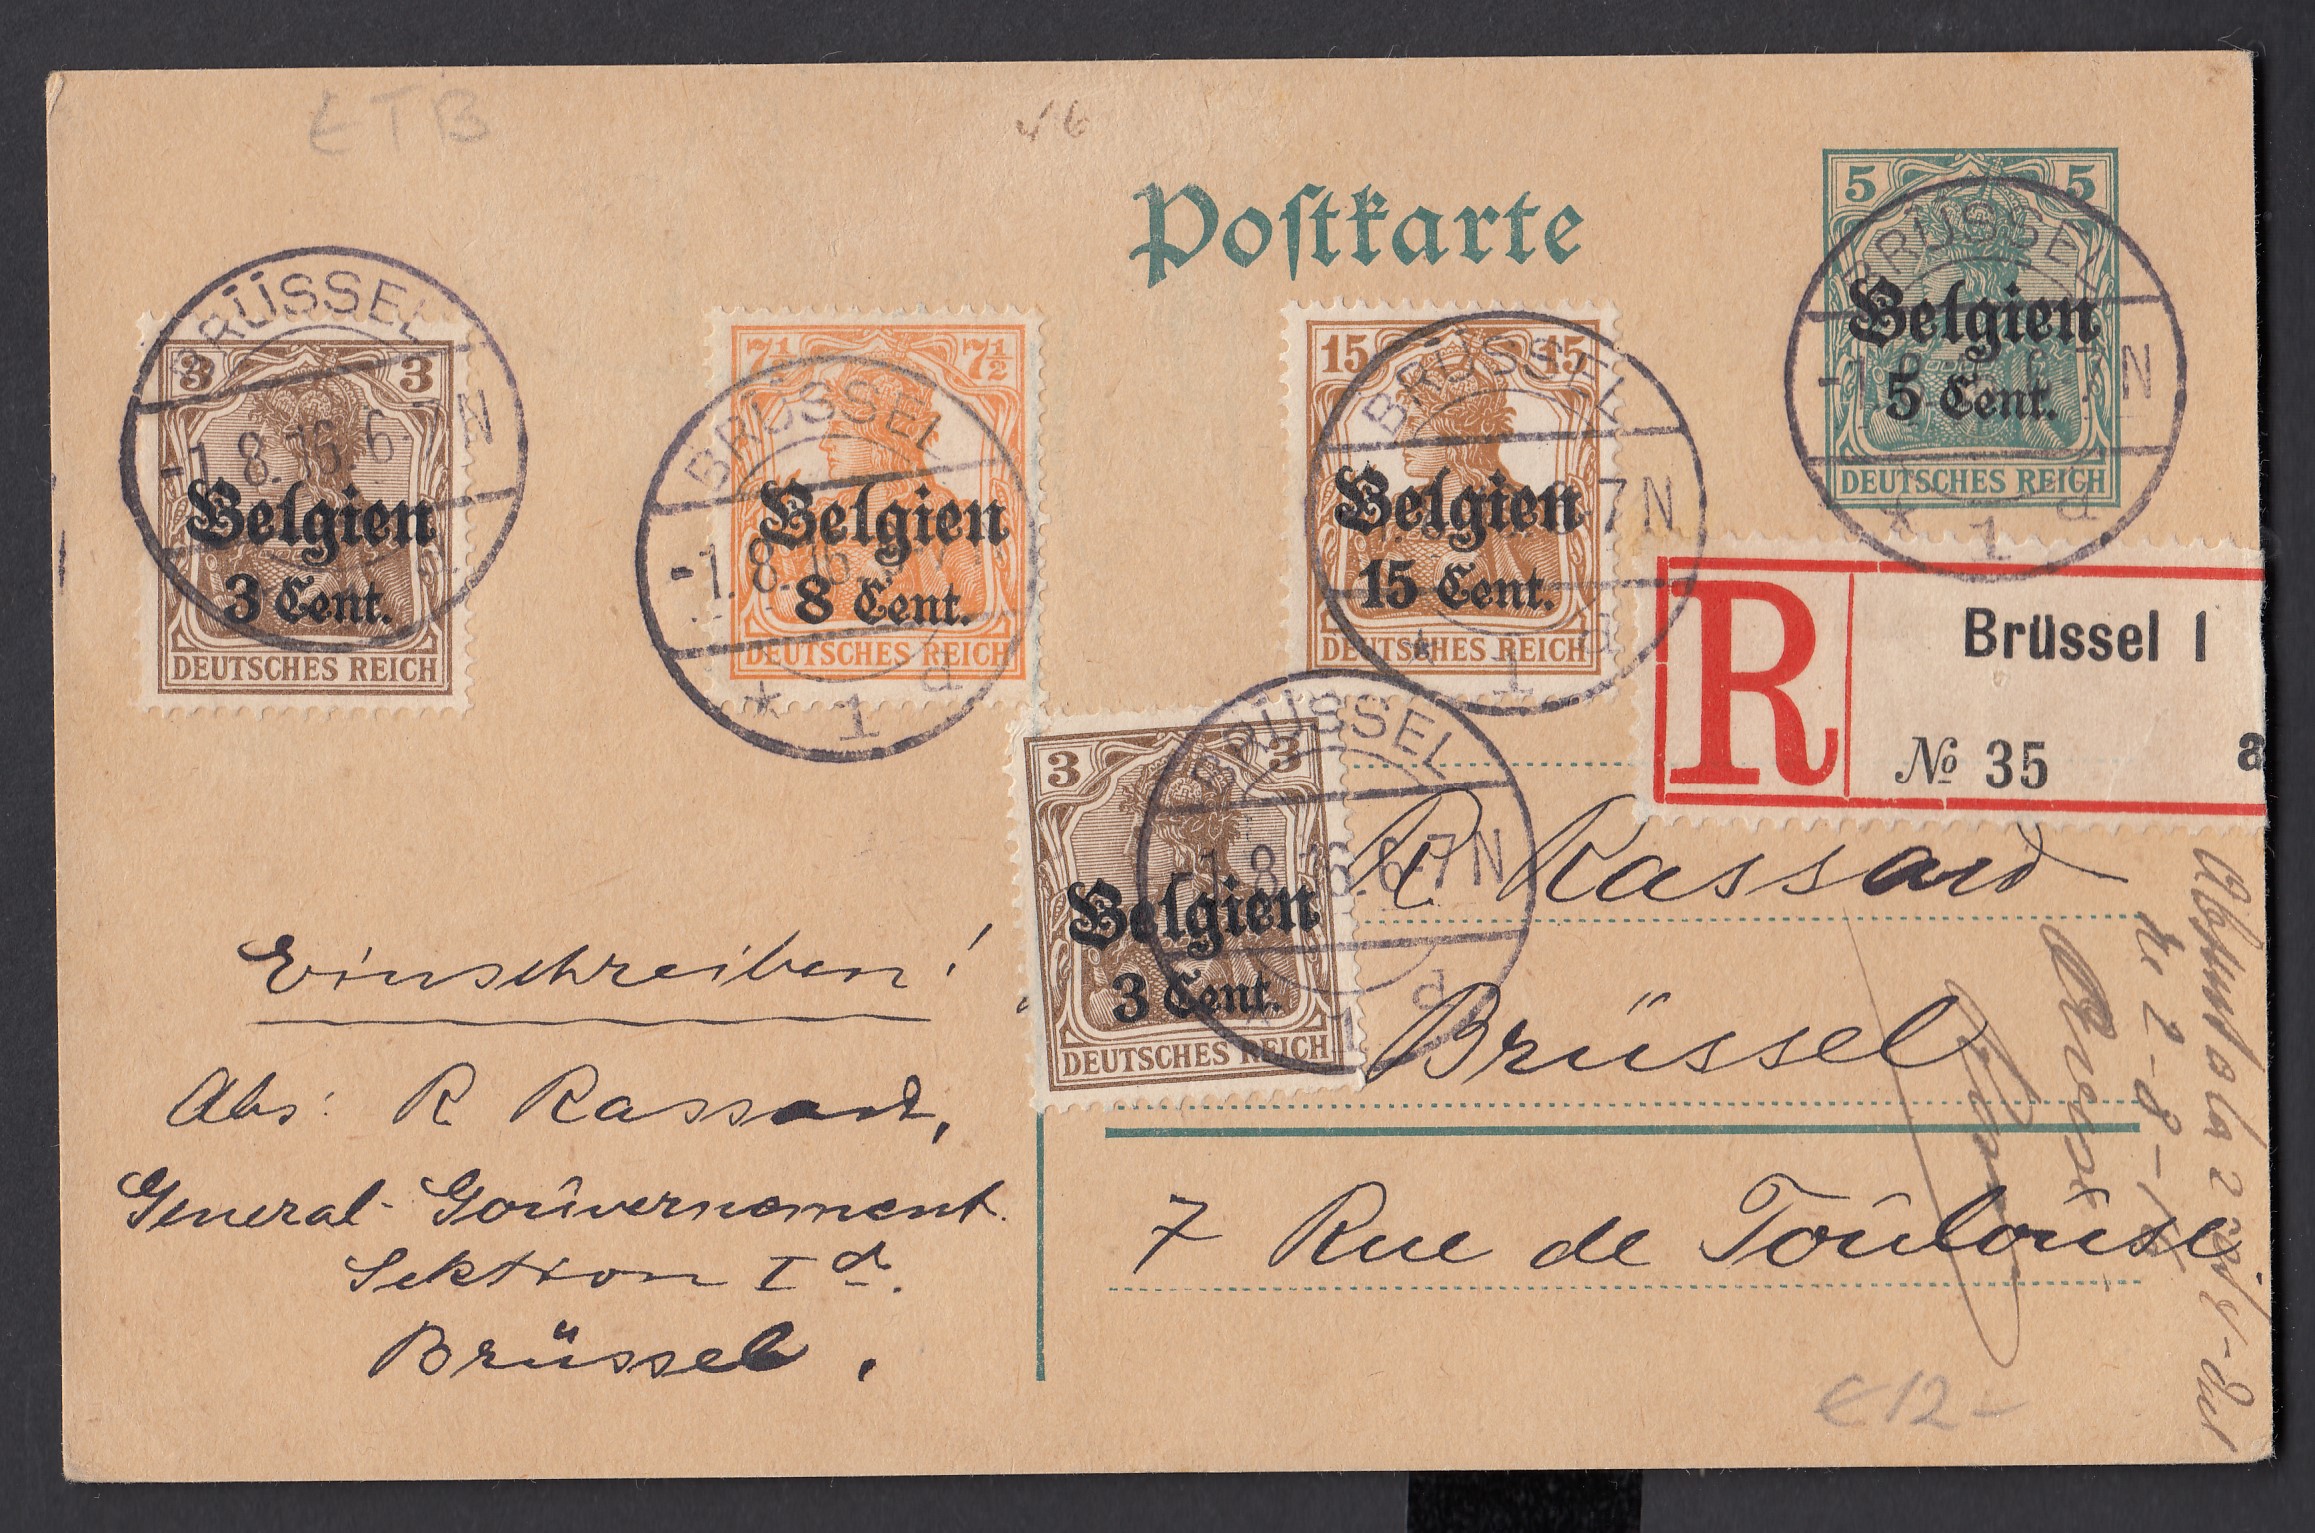 ETB
Postkarte
5 5
Belgien
5 Cent.
DEUTSCHES REICH
BRÜSSEL
* 1 d
3 3
Belgien
3 Cent.
DEUTSCHES REICH
BRÜSSEL
-1.8.16.6-7N
7½ 7½
Belgien
8 Cent.
DEUTSCHES REICH
BRÜSSEL
-1.8.16
* 1 d
15 15
Belgien
15 Cent.
DEUTSCHES REICH
BRÜSSEL
6-7N
* 1 d
R
Brüssel 1
№ 35 a
3 3
Belgien
3 Cent.
DEUTSCHES REICH
BRÜSSEL
-1.8.16.6-7N
* 1 d
R. Kassard
Brüssel
7 Rue de Toulouse
Einschreiben!
Abs: R Kassard,
General-Gouvernement.
Sektion I d.
Brüssel.
2-8-
€12-